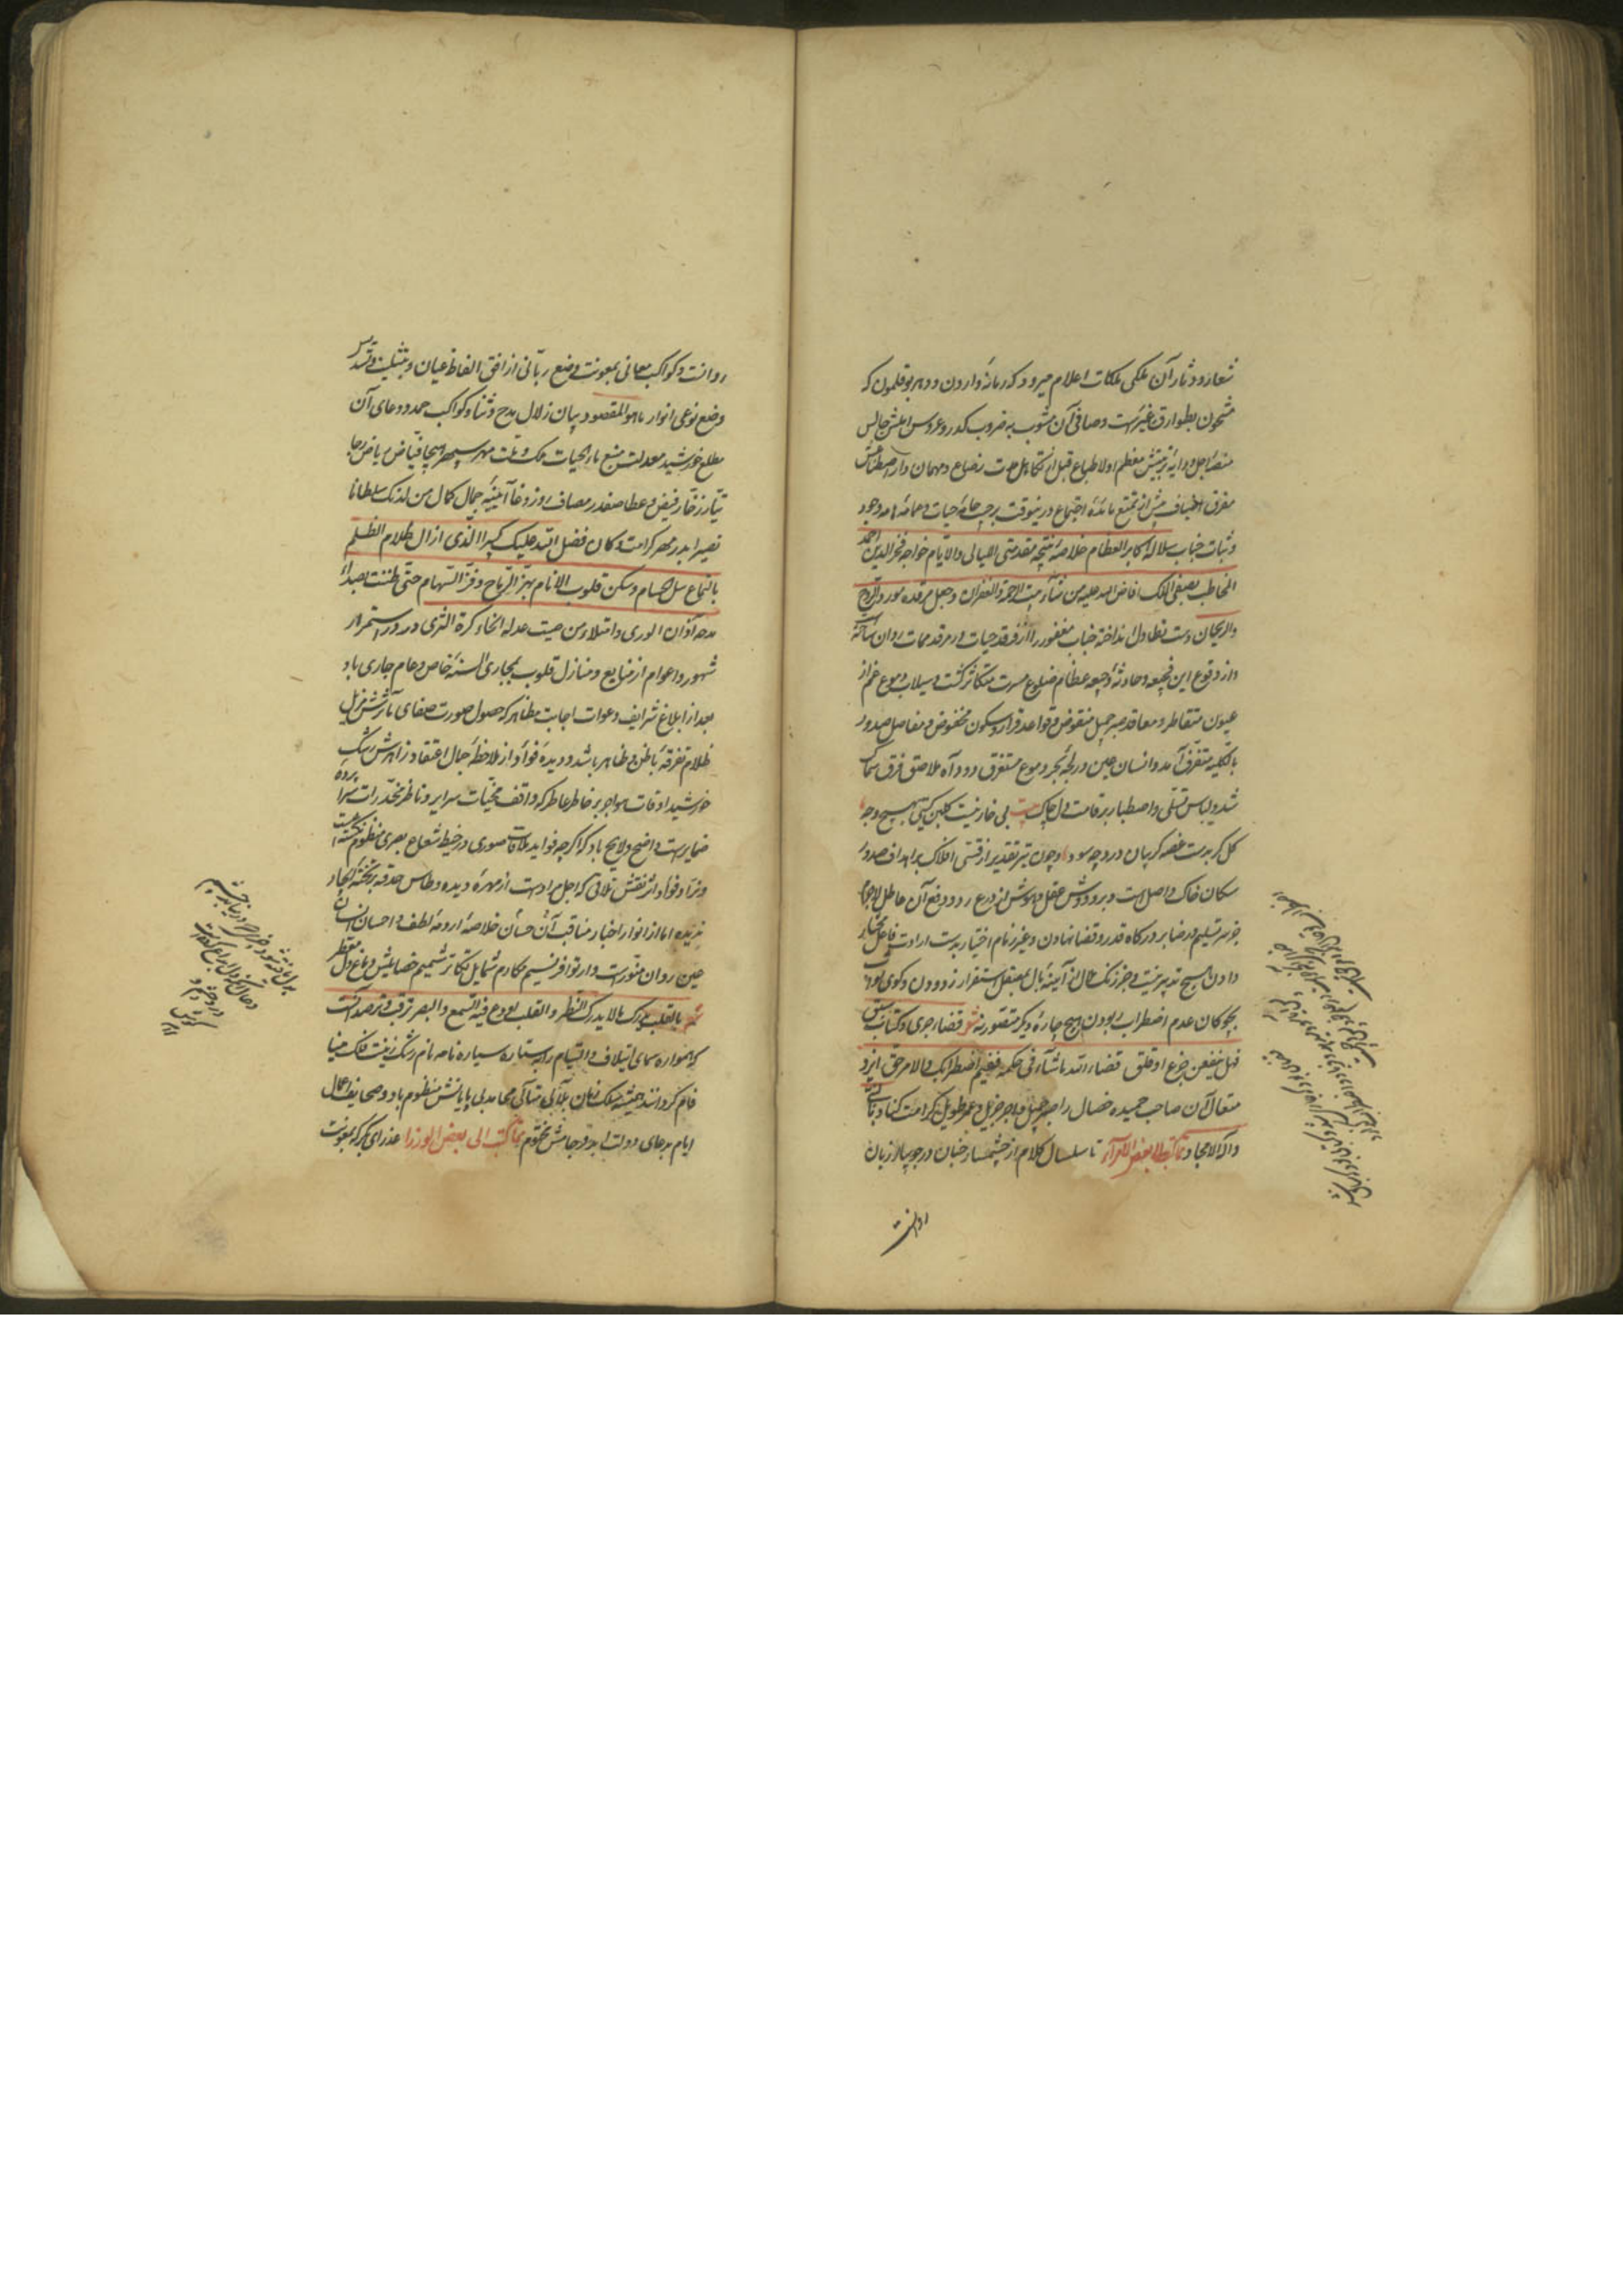 شعار و دثار آن ملکی ملکات اعلام میرود که زمانهٔ وارون و دهر بوقلمون که
مشحون بطوارق غیرست و صافی آن مشوب بضروب کدر و عروس املش جالس
منصهٔ اجل و دایهٔ تربیتش معظم اولا طباع قبل از تکامل مدت رضاع و مهمان دار اصطناعش
مفرق اضیاف پیش از تمتع مائدهٔ اجتماع درینوقت بر جامهٔ حیات و عمامهٔ هامه وجود
و ثبات جناب سلالهٔ اکابر العظام خلاصهٔ نتیجه مقدمتی اللیالی والایام خواجه فخر الدین احمد
المخاطب بصفی الملک افاض الله علیه من شآبیب الرحمة والغفران و جعل مرقده مورد الروح
والریحان دست تطاول انداخته جناب مغفور را از فرقد حیات در مرقد ممات روان ساخته
و از وقوع این فجیعه و حادثهٔ وجیعه عظام ضلوع مسرت متکاثر گشت و سیلاب دموع غم از
عیون متقاطر و معاقد صبر جمیل منقوض و قواعد قرار و سکون مخفوض و مفاصل صدور
بالکلیه متفرق آمد و انسان عین در لجهٔ بحر دموع مستغرق و دود آه ملاصق فرق سماک
شد و لباس تسلی و اصطبار بر قامت دل چاک بیت بی خار نیست گلبن گیتی بهیچ وجه
گل گر بدست غصه گریبان درد چه سود و چون تیر تقدیر از قسی افلاک بر اهداف صدور
سکان خاک واصل است و برد دوش عقل و هوش از درع رد و دفع آن عاطل لاجرم
جز سر تسلیم و رضا بر درگاه قدر و قضا نهادن و غیر زمام اختیار بدست ارادت فاعل مختار
دادن هیچ تدبیر نیست و جز زنگ ملال از آینهٔ بال بصقل استقرار زدودن و گوی بهبود
بچوگان عدم اضطراب ربودن هیچ چارهٔ دیگر متصور نه شعر قضاء جری و کتاب سبق
فهل ینفعن جزع او قلق قضاء الله ماشاء فی حکمه ففیم اضطرابک والامر حق ایزد
متعال آن صاحب حمیده خصال را صبر جمیل و اجر جزیل و عمر طویل کرامت کناد بالنبی
و آله الامجاد مما کتب الی بعض الامرآء تا سلسال کلام از چشمه‌سار جنان در جویبار زبان
روانست
روانست و کواکب معانی بمعونت وضع ربانی از افق الفاظ عیان و بتثلیث و تسدیس
وضع نوعی انوار ماهو المقصود بیان زلال مدح و ثنا و کواکب حمد و دعای آن
مطلع خورشید معدلت منبع ماء الحیات ملک و ملت مهر سپهر هیجا فیاض ریاض رجا
تیار زخار فیض و عطا صفدر مصاف روز وغا آیینهٔ جمال کمال من لدنک سلطانا
نصیرا بدر مهر کرامت و کان فضل الله علیک کبیرا الذی ازال ظلام الظلم
بالتماع سل الحسام و سکن قلوب الانام بهز الرماح و فر السهام حتی طننت بصداء
مدحه آذان الوری وامتلاء من صیت عدله انحاء کرة الثری در دور استمرار
شهور و اعوام از منابع و منازل قلوب بمجاری السنهٔ خاص و عام جاری باد
بعد از ابلاغ شرایف دعوات اجابت مظاهر که حصول صورت صفای مآثرش مزیل
ظلام تفرقهٔ باطن و ظاهر باشد و دیدهٔ فؤاد از ملاحظهٔ جمال اعتقاد زاهرش رشک
خورشید اوقات هواجر بر خاطر عاطر که واقف مخبیات سرایر و ناظر مخدرات سراپرده
ضمایرست واضح و لایح باد که اگرچه فواید ملاقات صوری در خیط شعاع بصری منظوم نگشته است
و نراد فؤاد اثر نقش تلاقی که اجل مراد است از مهرهٔ دیده و طاس حدقه بر تخته ایجاد
ندیده اما از انوار اخبار مناقب آن حسان خلاصهٔ ارومهٔ لطف و احسان انسان
عین روان منورست و از توافر نسیم مکارم شمایل و تکاثر شمیم خصایلش دماغ دل معطر
شعر بالقلب یدرک مالا یدرک النظر والقلب اودع فیه السمع والبصر ترقب و ترصد آنست
که همواره سمای ایتلاف و التیام را بستاره سیاره نامه نام رشک زینت فلک مینا
فام گردانند همیشه سلک زمان بلآلی متلالی محامد بی پایانش منظوم باد و صحایف اعمال
ایام بدعای دولت ابد فرجامش مختوم مما کتب الی بعض الوزرا عذرای بکر که بمعونت